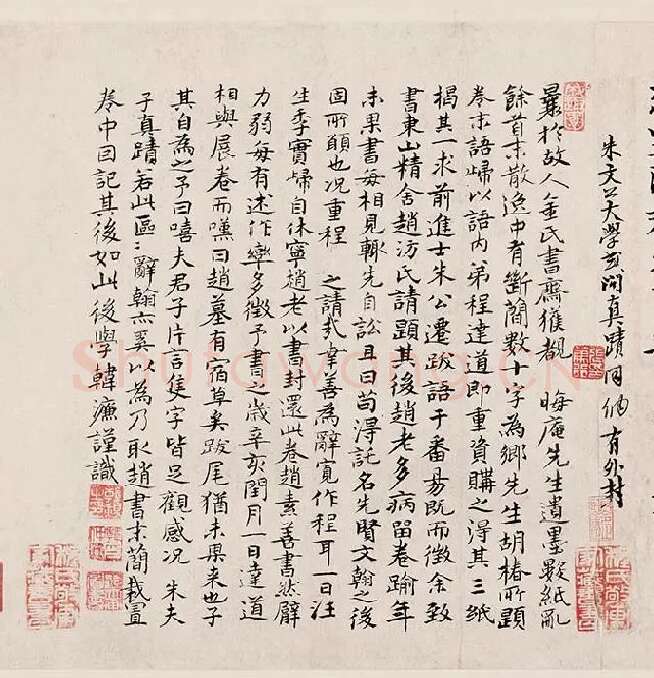 朱文公大學或問真蹟同佩有外封
曩於故人金氏書齋獲覩 晦庵先生遺墨數紙亂
餘首末散逸中有斷簡數十字為鄉先生胡椿所題
卷末語歸以語內弟程達道即重資購之得其三紙
楬其一求前進士朱公遷跋語于番昜既而徵余致
書東山精舍趙汸氏請題其後趙老多病留卷踰年
未果書每相見輒先自訟且曰苟淂託名先賢文翰之後
固所願也况重程 之請弍幸善為辭寬作程耳一日汪
生季實歸自休寧趙老以書封還此卷趙素善書然臂
力弱每有述作率多徵予書之歲辛亥閏月一日達道
相與展卷而嘆曰趙墓有宿草矣跋尾猶未果来也子
其自為之予曰嘻夫君子片言隻字皆足觀感况 朱夫
子真蹟若此區〻辭翰亦奚以為乃取趙書末簡裁置
卷中因記其後如此後學韓濂謹識
Shufawang.CN